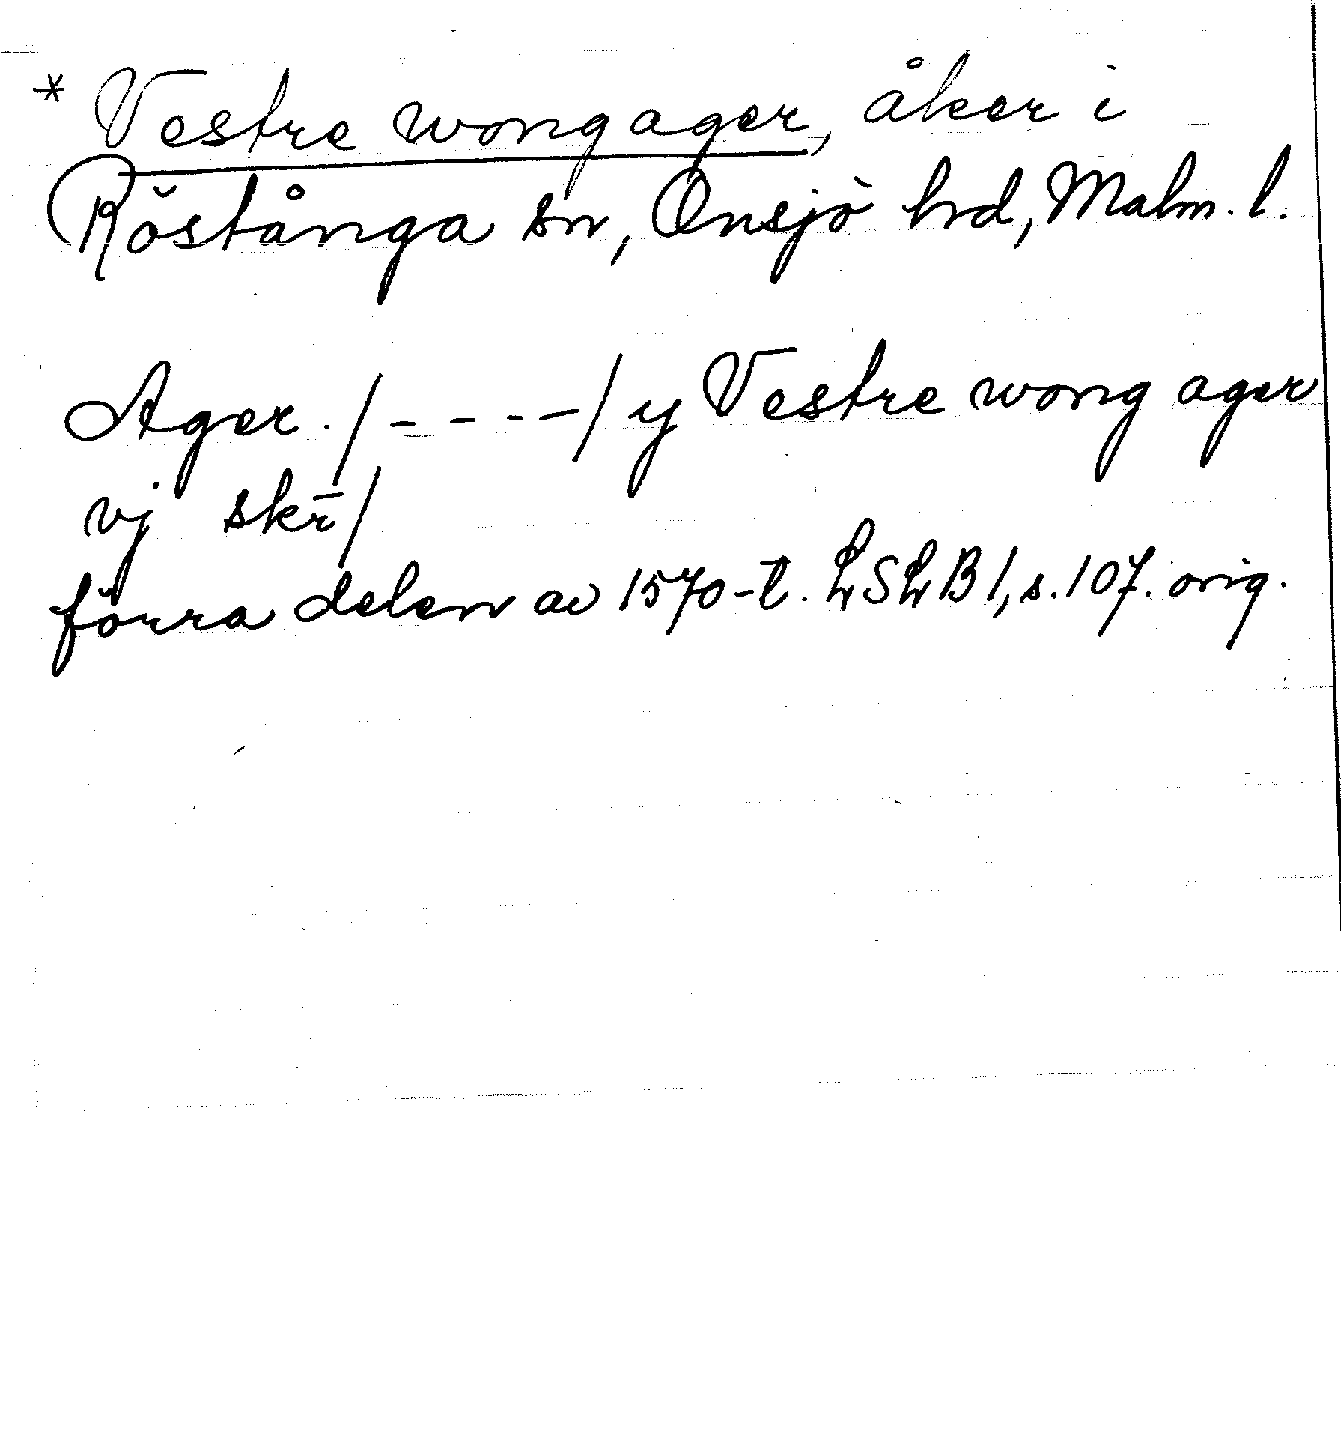 * Vestre wong ager, åker i
Röstånga sn, Onsjö hd, Malm. l.
Ager. /- - - -/ y Vestre wong ager
vj skr̄/
förra delen av 1570-t. LSLB 1, s. 107. orig.